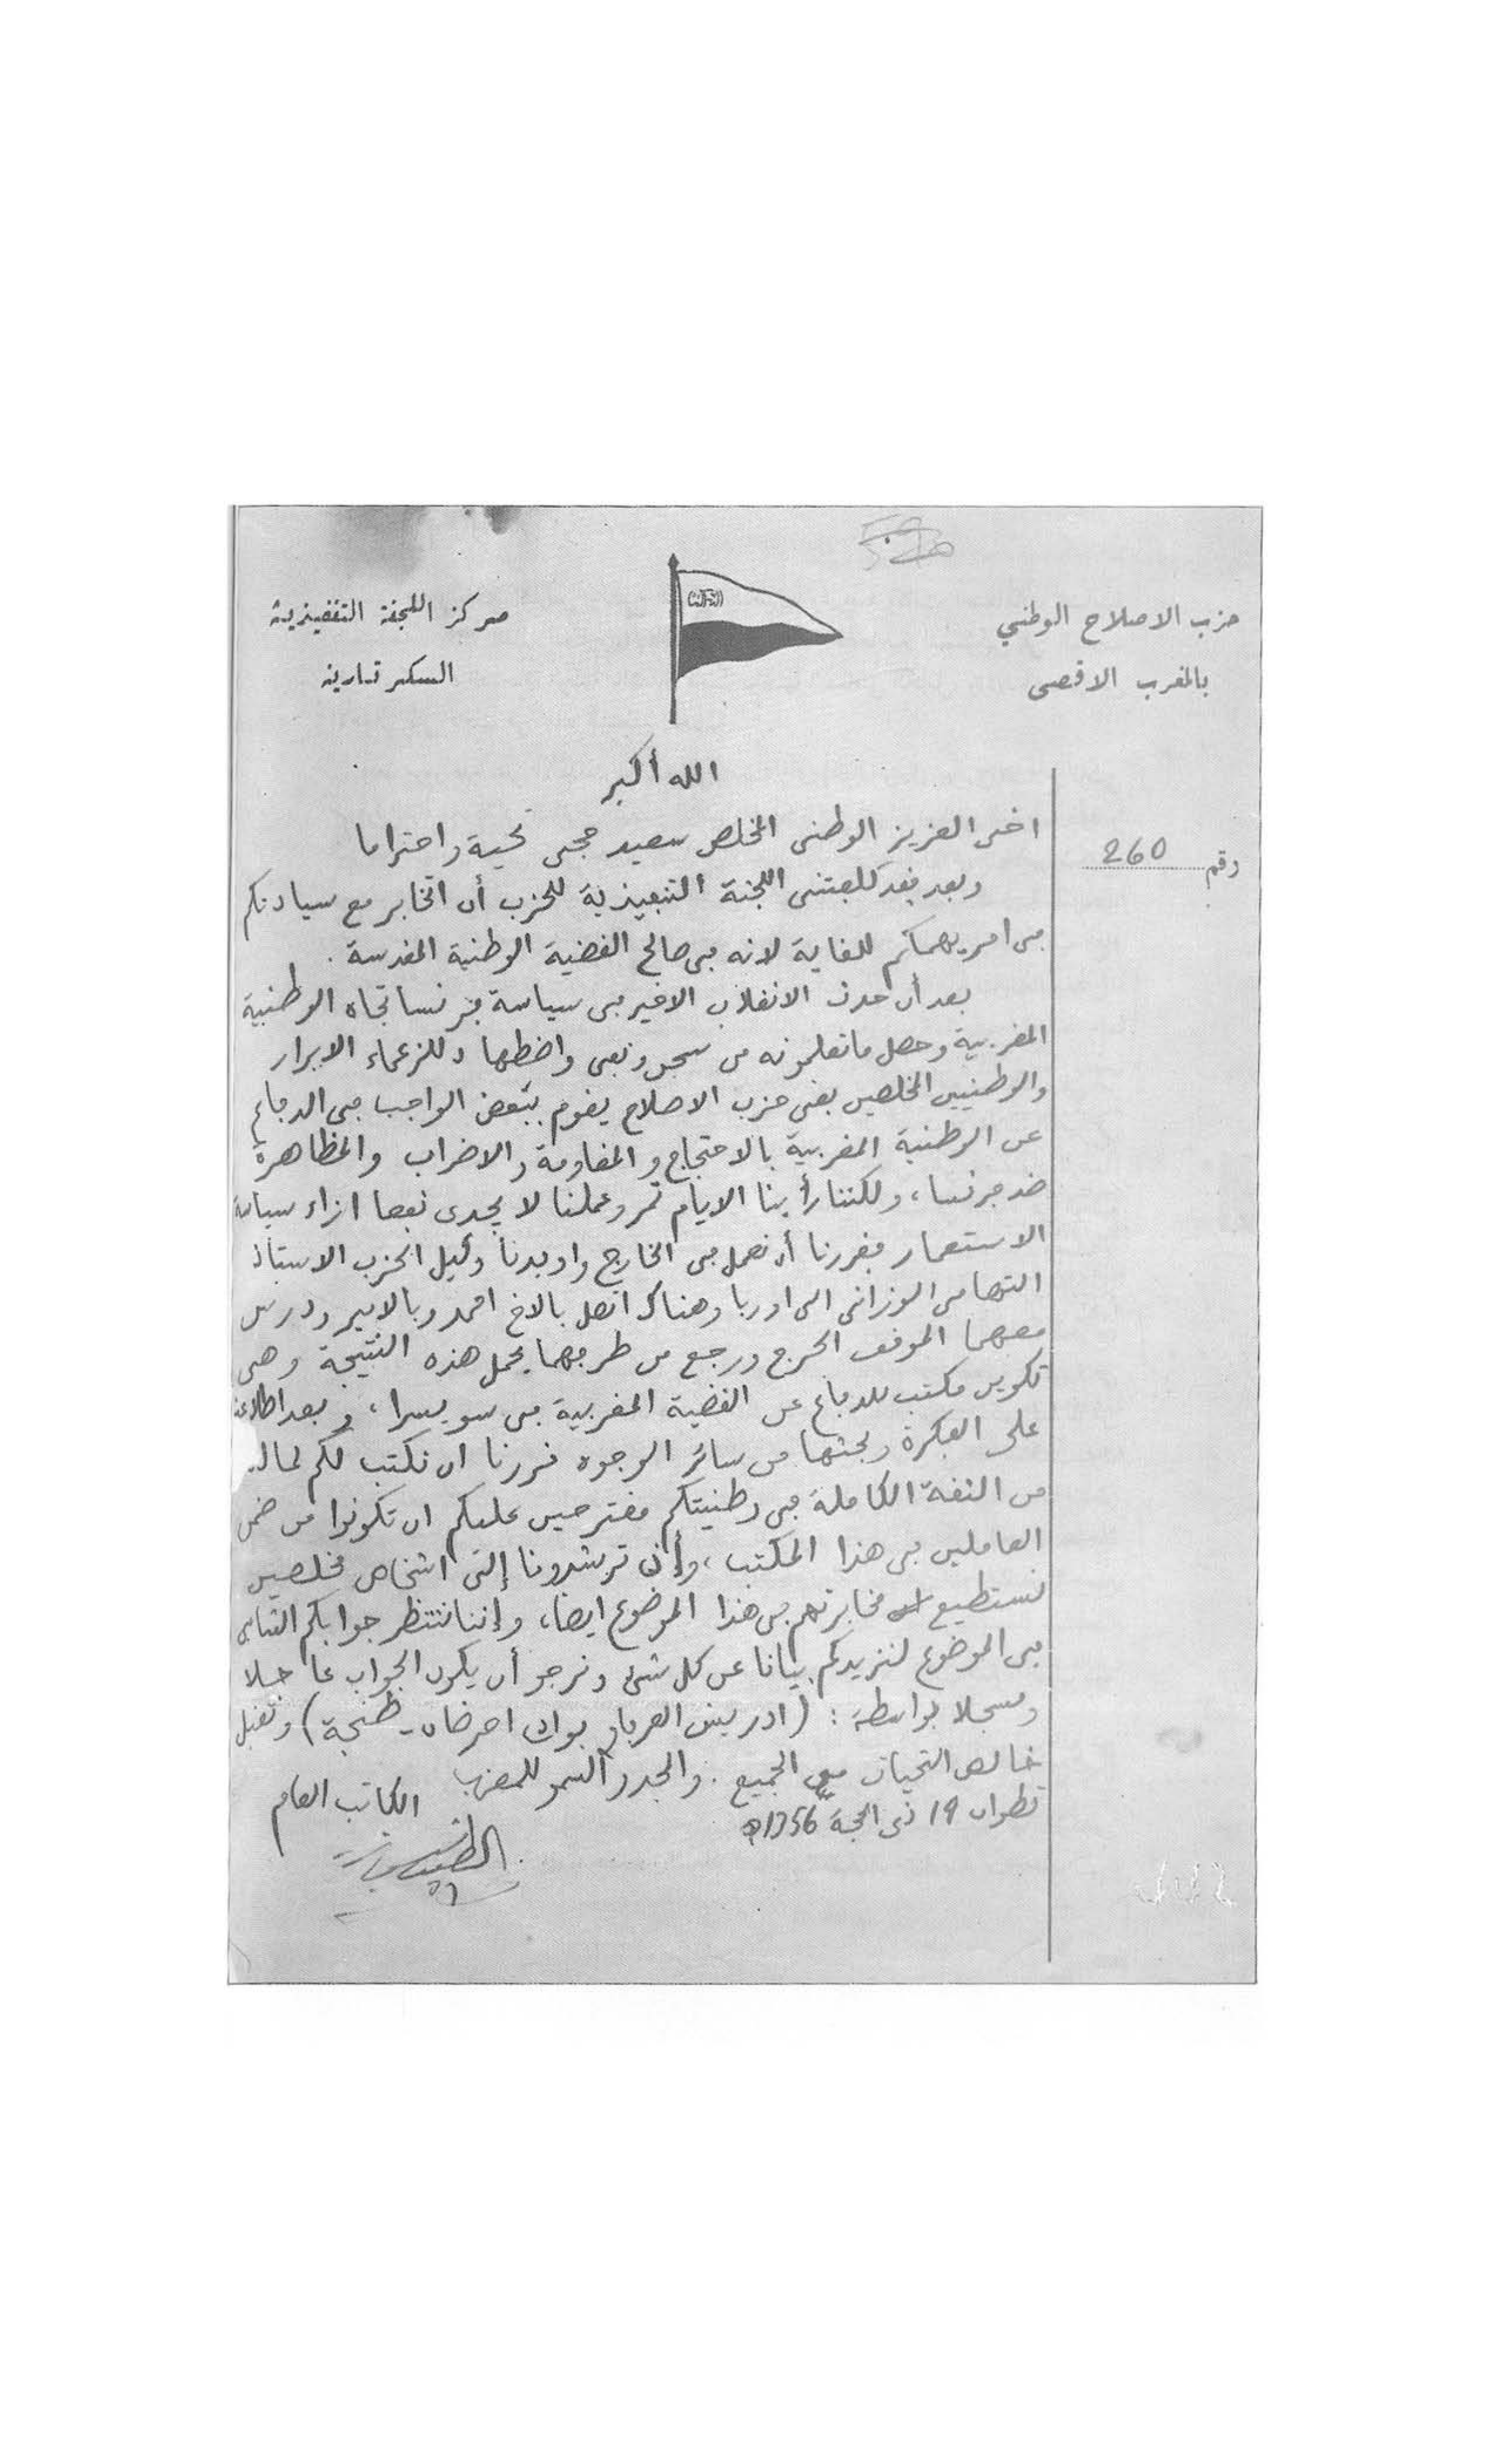 حزب الاصلاح الوطني
بالمغرب الاقصى
مركز اللجنة التنفيذية
السكرتارية
الله أكبر
رقم 260
اخى العزيز الوطنى المخلص سعيد حجى تحية واحتراما
وبعد فقد كلفتنى اللجنة التنفيذية للحزب أن اتخابر مع سيادتكم
فى امر يهمكم للغاية لانه فى صالح القضية الوطنية المقدسة .
بعد أن حدث الانقلاب الاخير فى سياسة فرنسا تجاه الوطنية
المغربية وحصل ما تعلمونه من سجن ونفى واضطهاد للزعماء الابرار
والوطنيين المخلصين بقى حزب الاصلاح يقوم ببعض الواجب فى الدفاع
عن الوطنية المغربية بالاحتجاج والمقاومة والاضراب والمظاهرة
ضد فرنسا، ولكننا رأينا الايام تمر وعملنا لا يجدى نفعا ازاء سياسة
الاستعمار فقررنا أن نعمل فى الخارج واوفدنا وكيل الحزب الاستاذ
التهامى الوزانى الى اوربا وهناك اتصل بالاخ احمد وبالامير ودرس
معهما الموقف الحرج ورجع من طرفهما يحمل هذه النتيجة وهى
تكوين مكتب للدفاع عن القضية المغربية فى سويسرا، وبعد اطلاعنا
على الفكرة وبحثها من سائر الوجوه قررنا ان نكتب لكم لما لنا
من الثقة الكاملة فى وطنيتكم مقترحين عليكم ان تكونوا من ضمن
العاملين فى هذا المكتب، وأن ترشدونا إلى اشخاص مخلصين
نستطيع مخابرتهم فى هذا الموضوع ايضا، وإننا ننتظر جوابكم الشافى
فى الموضوع لنزيدكم بيانا عن كل شئ ونرجو أن يكون الجواب عاجلا
ومسجلا بواسطة : (ادريس العرفاوى بواد احرضان - طنجة) وتقبل
خالص التحيات من الجميع . والمجد والسمو للمغرب
تطوان 19 ذى الحجة 1356 ه
الكاتب العام